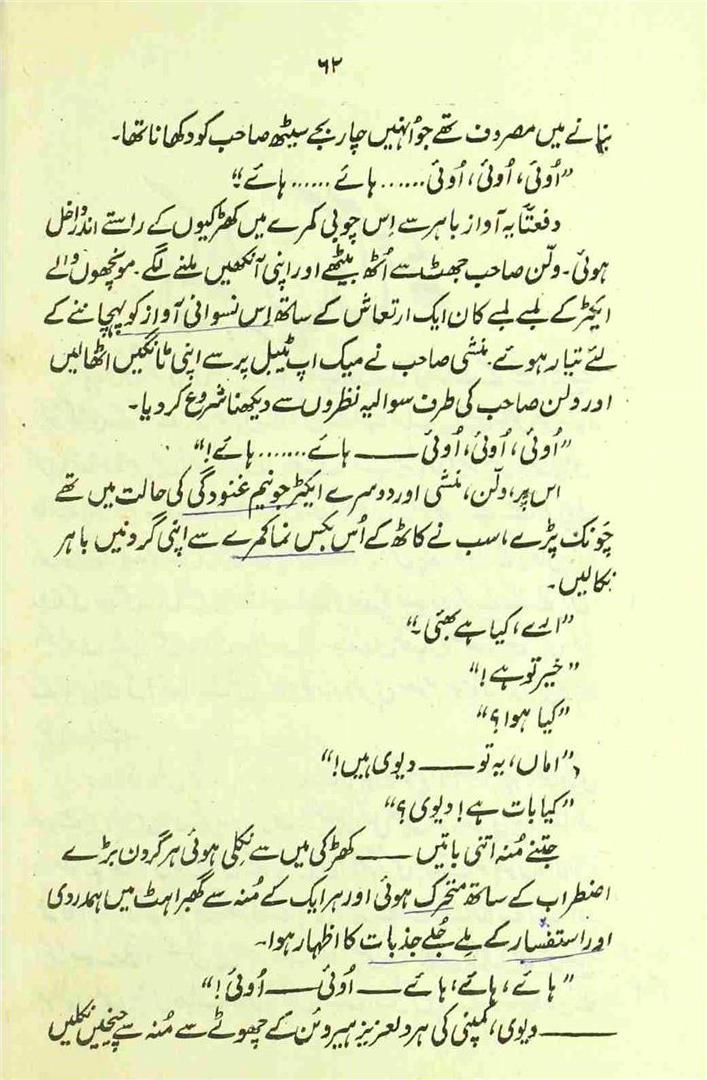 ۶۲
بنانے میں مصروف تھے جو اُنہیں چار بجے سیٹھ صاحب کو دکھانا تھا۔
”اُوئی، اُوئی، اُوئی...... ہائے ...... ہائے“
دفعتاً یہ آواز باہر سے اِس چوبی کمرے میں کھڑکیوں کے راستے اندر داخل
ہوئی۔ ولن صاحب جھٹ سے اُٹھ بیٹھے اور اپنی آنکھیں ملنے لگے۔ مونچھوں والے
ایکٹر کے لمبے لمبے کان ایک ارتعاش کے ساتھ اِس نسوانی آواز کو پہچاننے کے
لئے تیار ہوئے۔ منشی صاحب نے میک اپ ٹیبل پر سے اپنی ٹانگیں اٹھالیں
اور ولن صاحب کی طرف سوالیہ نظروں سے دیکھنا شروع کر دیا۔
”اُوئی، اُوئی، اُوئی —— ہائے ....... ہائے!“
اس پر، ولن، منشی اور دوسرے ایکٹر جو نیم غنودگی کی حالت میں تھے
چونک پڑے، سب نے کاٹھ کے اُس بکس نما کمرے سے اپنی گردنیں باہر
نکالیں۔
”ارے، کیا ہے بھئی۔“
”خیر تو ہے!“
”کیا ہوا؟“
”اماں، یہ تو —— دیوی ہیں!“
”کیا بات ہے! دیوی؟“
جتنے مُنہ اتنی باتیں —— کھڑکی میں سے نکلی ہوئی ہر گردن بڑے
اضطراب کے ساتھ متحرک ہوئی اور ہر ایک کے مُنہ سے گھبراہٹ میں ہمدردی
اور استفسار کے ملے جُلے جذبات کا اظہار ہوا۔
”ہائے، ہائے، ہائے —— اُوئی —— اُوئی!“
—— دیوی، کمپنی کی ہر دلعزیز ہیروئن کے چھوٹے سے مُنہ سے چیخیں نکلیں